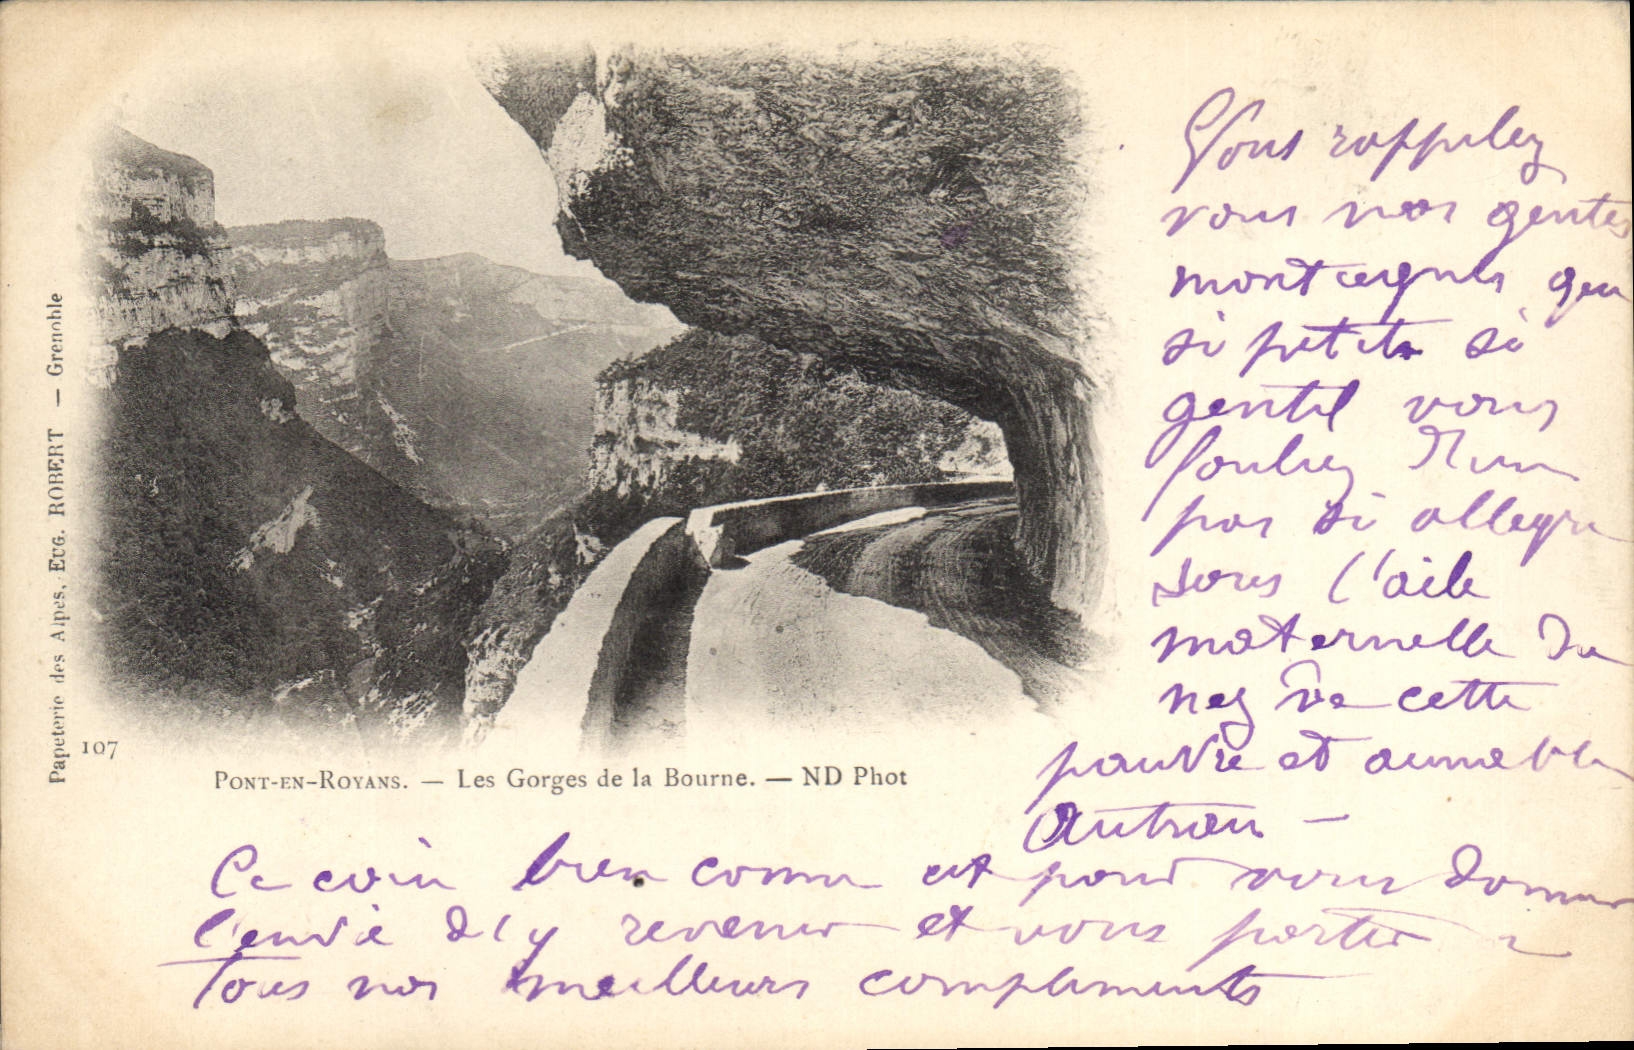 Vous rappelez
vous nos gentes
montagnes que
si petit si
gentil vous
pas si
sous l'aile
maternelle du
cette
pauvre et
Autran —
Ce coin bien connu est pour vous donner
l'envie d'y revenir et vous porter à
Tous nos meilleurs compliments
107
PONT-EN-ROYANS. — Les Gorges de la Bourne. — ND Phot
Papeterie des Alpes, EUG. ROBERT — Grenoble